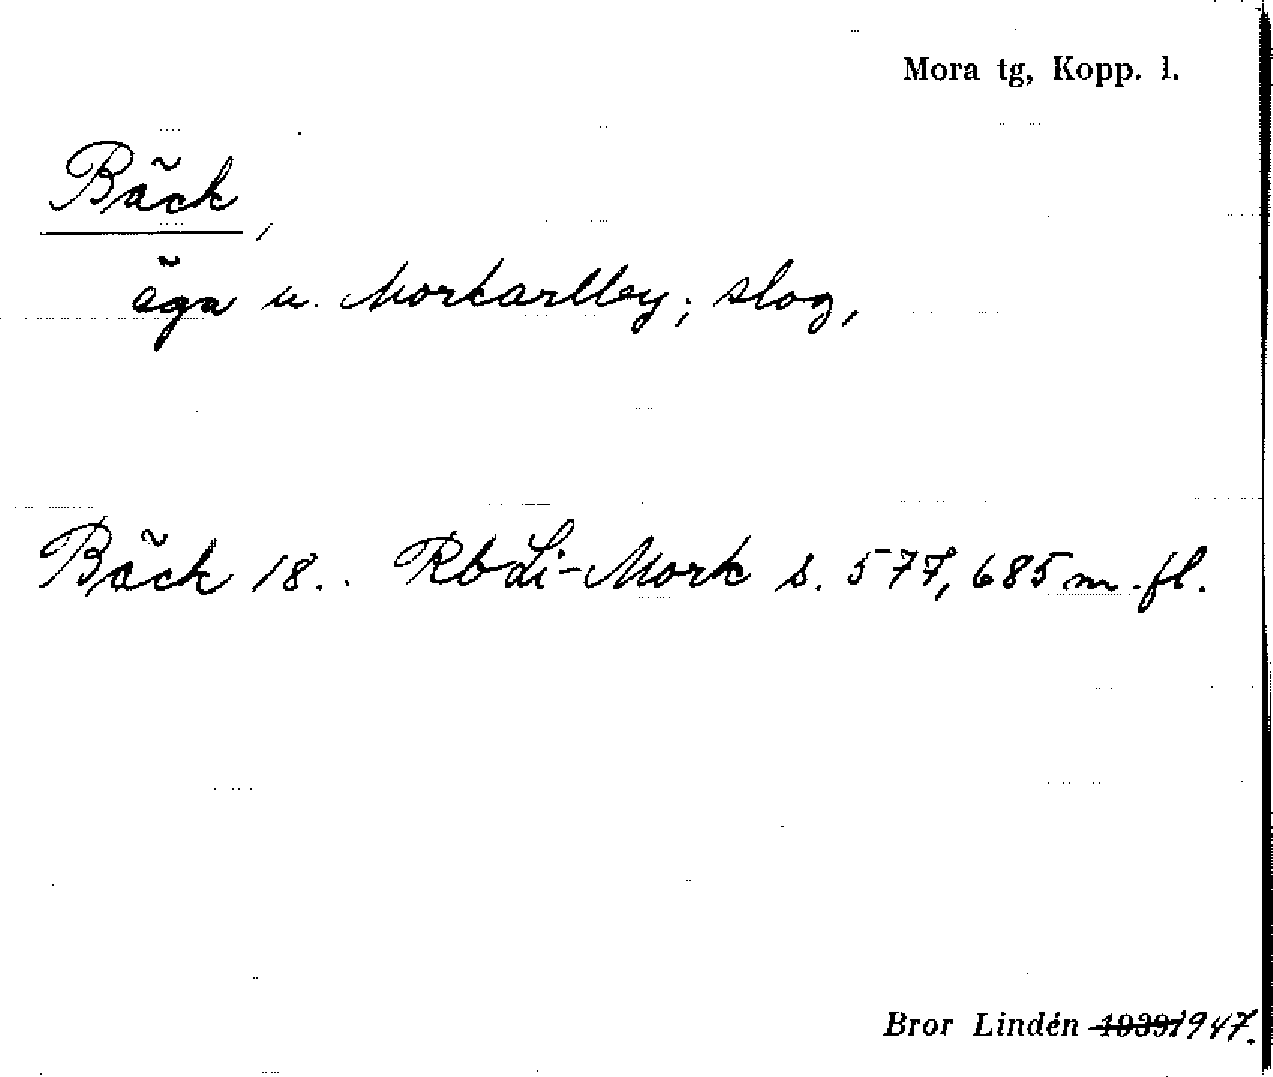 Mora tg, Kopp. l.
Bäck,
äga u. Morkarlby; slog,
Bäck 18.. RbLi-Mork s. 577, 685 m. fl.
Bror Lindén 1939 1947.